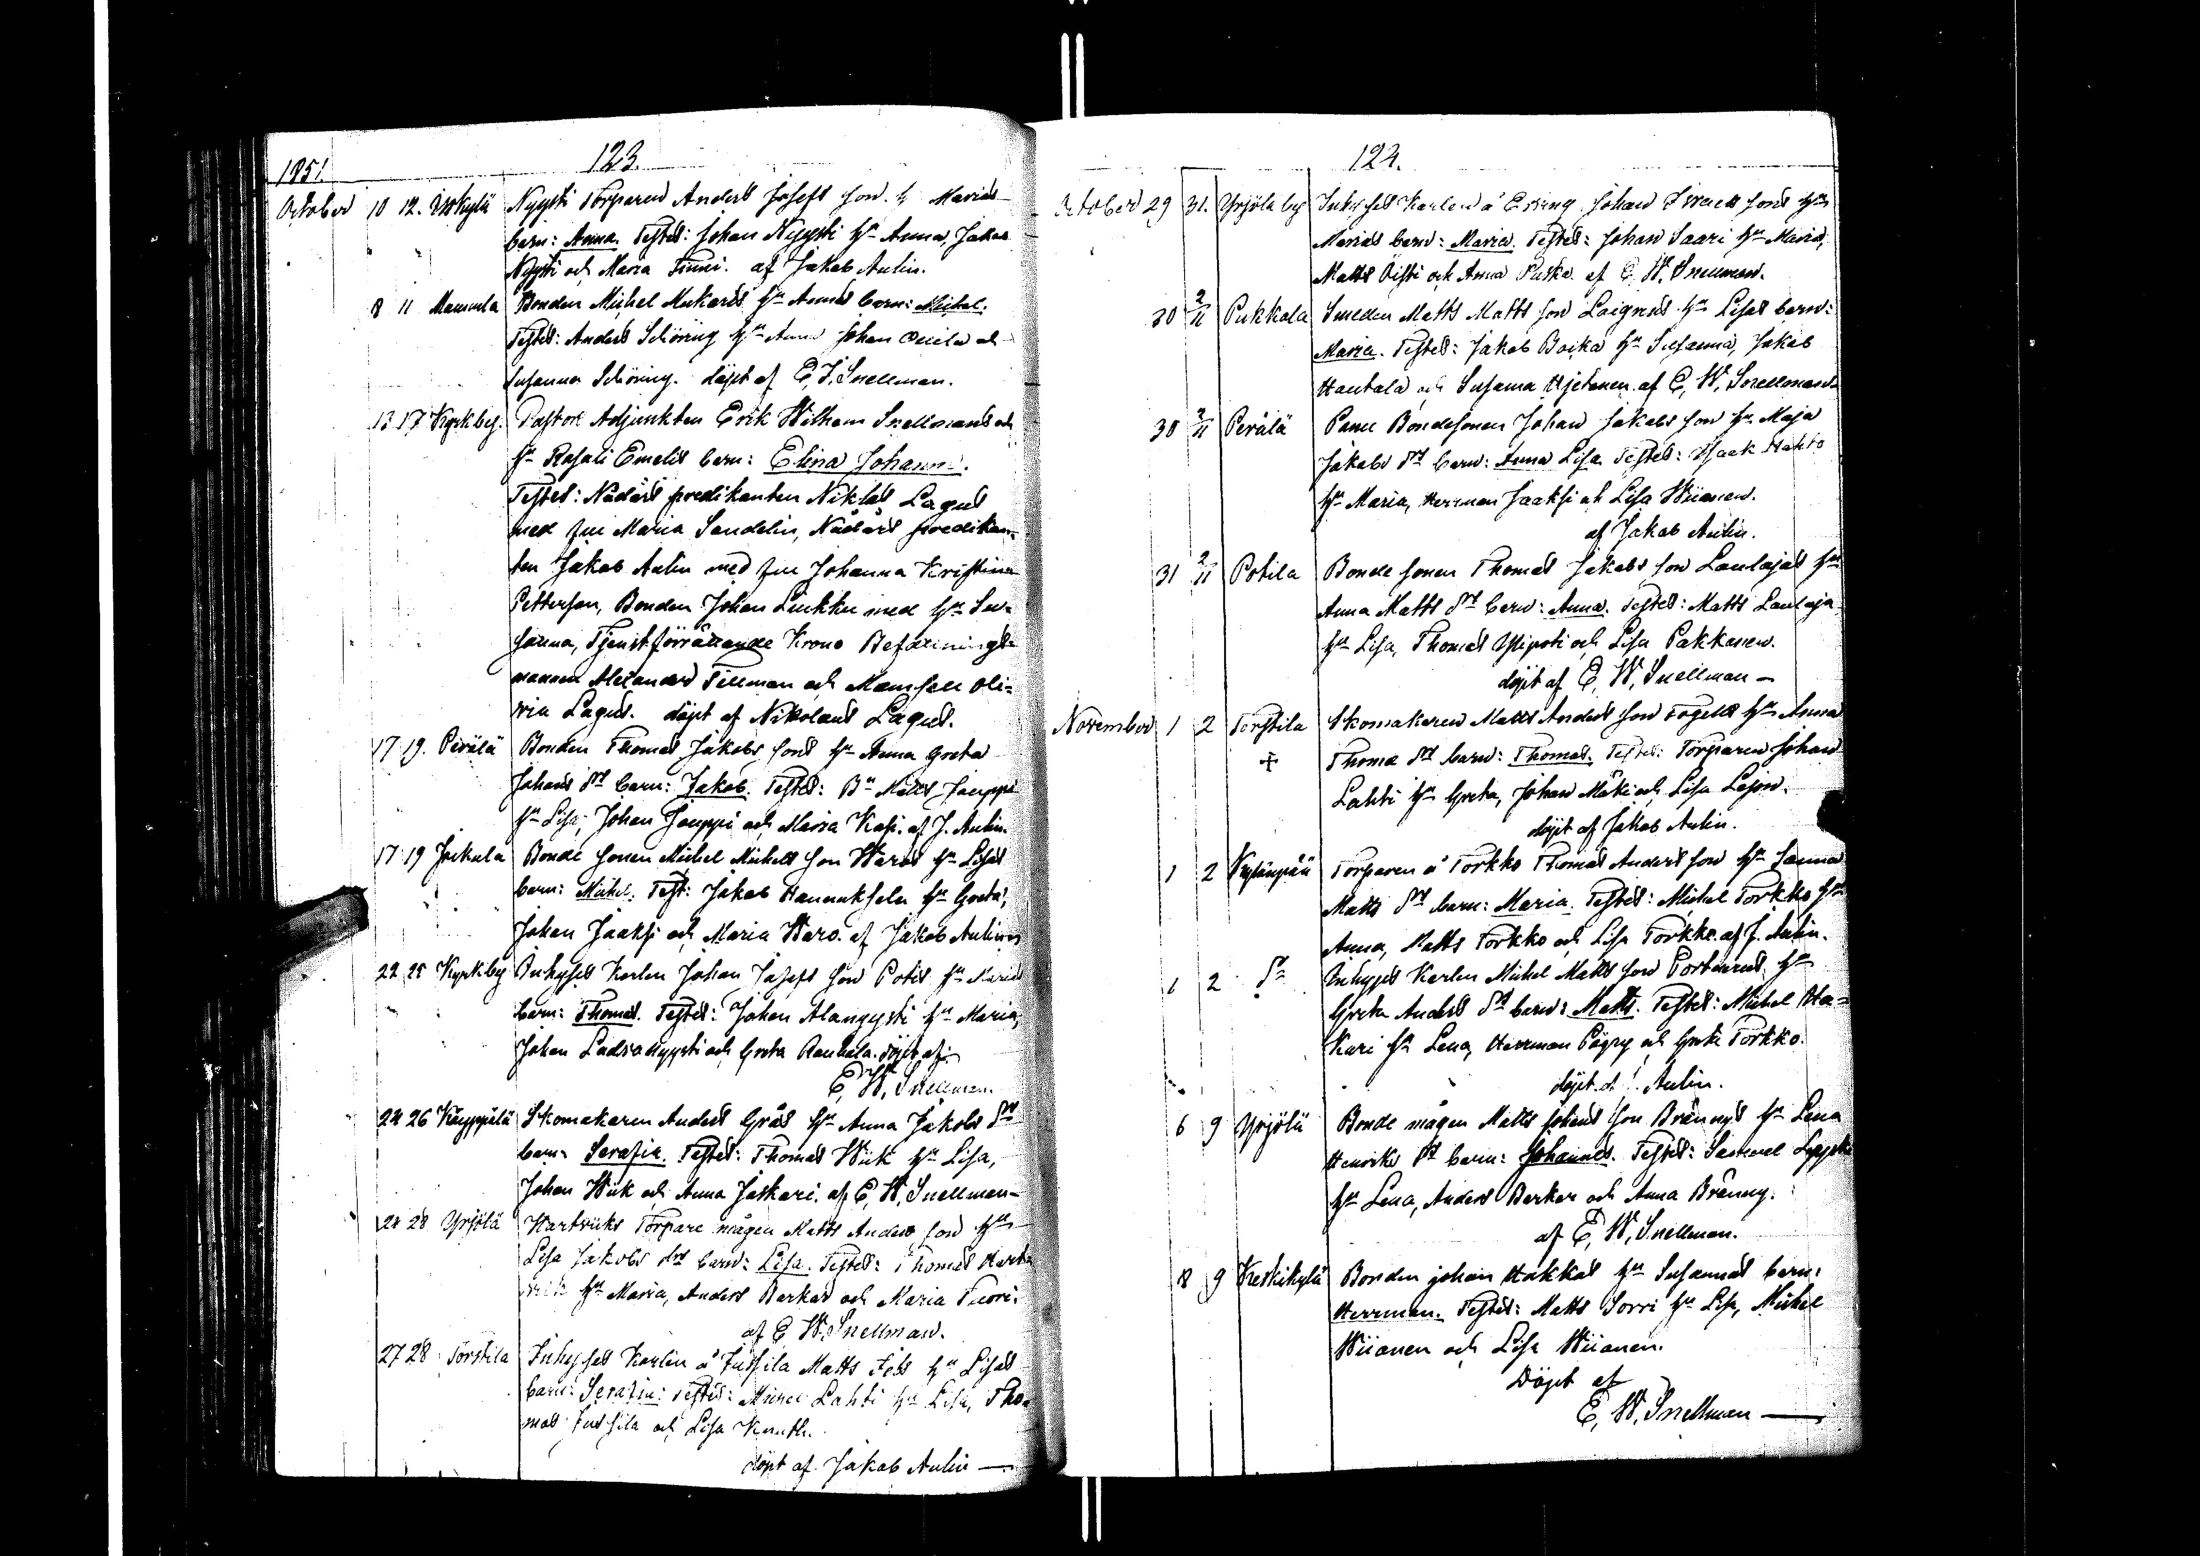 1851.
123.
October 10 12. Nysti Torparen Anders Josefs son h. Marias
barn: Anna. Testes: Johan Nyysti h:u Anna, Jakob
Nysti och Maria Finni. af Jakob Aulin.
8 11 Mammela Bonden Michel h:u Annas barn: Michel.
Testes: Anders Schöring h:u Anna Johan och
Susanna Schöring. döpt af E. J. Snellman.
13 17 Kyrkby. Pastors Adjunkten Erik Wilhem Snellmans och
h:u Rosali Emelis barn: Elina Johanna.
Testes: Nådårs predikanten Niklas Lagus
med fru Maria Sandelin, Nådårs predikan-
ten Jakob Aulin med fru Johanna Kristina
Petterson, Bonden Johan Linkku med h:u Su-
sanna, Tjenstförrättande Krono Befallnings-
mannen Alexander Tillman och Mamsell Oli-
via Lagus. döpt af Nikolaus Lagus.
17 19. Perälä Bonden Thomas Jakobs sons h:u Anna Greta
Johans d:r barn: Jakob. Testes: B:n Matts Jauppi
h:u Lisa, Johan Jauppi och Maria Kasi. af J. Aulin.
17 19 Jockala Bonde sonen Michel Michels son Waros h:u Lisas
barn: Michel. Test: Jakob Hannuksela h:u Greta,
Johan Jaaksi och Maria Waro. af Jakob Aulin
22 25 Kyrkby Inhyses Karlen Johan Josefs son Potis h:u Marias
barn: Thomas. Testes: Johan Alanyysti h:u Maria,
Johan och Greta Rauhala. döpt af
E. W. Snellman.
24 26 Käyppälä Skomakaren Anders Grås h:u Anna Jakobs d:r
barn: Serafia. Testes: Thomas Wiik h:u Lisa,
Johan Wiik och Anna Jaskari. af E. W. Snellman
28 Yrjölä Hartviks Torpare mågen Matts Anders son h:u
Lisa Jakobs d:r barn: Lisa. Testes: Thomas Hart-
vik h:u Maria, Anders Barkar och Maria Tuori.
af E W. Snellman.
27 28 Torstila Inhyses Karlen å Jussila Matts h:u Lisas
barn: Serafia: Testes: Lahti h:u Lisa, Tho-
mas Jussila och Lisa
döpt af Jakob Aulin
124.
October 29 31. Yrjölä by Inhyses Karlen å Esking Johan Israels sons h:u
Marias barn: Maria. Testes: Johan Saari h:u Maria,
Matts och Anna Puska. af E. W. Snellman.
30 2/11 Pukkala Smeden Matts Matts son h:u Lisas barn:
Maria. Testes: Jakob h:u Susanna, Jakob
Hautala och Susanna af E. W. Snellman
30 2/11 Perälä Bondesonen Johan Jakobs son h:u Maja
Jakobs d:r barn: Anna Lisa. Testes: Isaak Hahto
h:u Maria, Herrman Jaaksi och Lisa Wiianen.
af Jakob Aulin.
31 2/11 Potila Bonde sonen Thomas Jakobs son Laulajas h:u
Anna Matts d:r barn: Anna. Testes: Matts Laulaja
h:u Lisa, Thomas Ylipoti och Lisa Pakkanen.
döpt af E. W. Snellman
November 1 2 Torstila Skomakaren Matts Anders son h:u Anna
Thomas d:r barn: Thomas. Testes: Torparen Johan
Lahti h:u Greta, Johan Mäki och Lisa Lejon.
döpt af Jakob Aulin.
1 2 Kylänpää Torparen å Torkko Thomas Anders son h:u Sanna
Matts d:r barn: Maria. Testes: Michel Torkko h:u
Anna, Matts Torkko och Lisa Torkko. af J. Aulin.
1 2 d:o Inhyses Karlen Michel Matts son h:u
Greta Anders d:r barn: Matts. Testes: Michel Ha-
kuri h:u Lena, Herrman Pögry och Greta Torkko.
döpt af J. Aulin.
6 9 Yrjölä Bonde mågen Matts Johans son Brännys h:u Lena
Henriks d:r barn: Johannes. Testes: Samuel
h:u Lena, Anders Barkar och Anna Bränny.
af E. W. Snellman.
8 9 Keskikylä Bonden Johan Hakkas h:u Susannas barn:
Herrman. Testes: Matts Sorri h:u Lisa, Michel
Wiianen och Lisa Wiianen.
Döpt af
E. W. Snellman